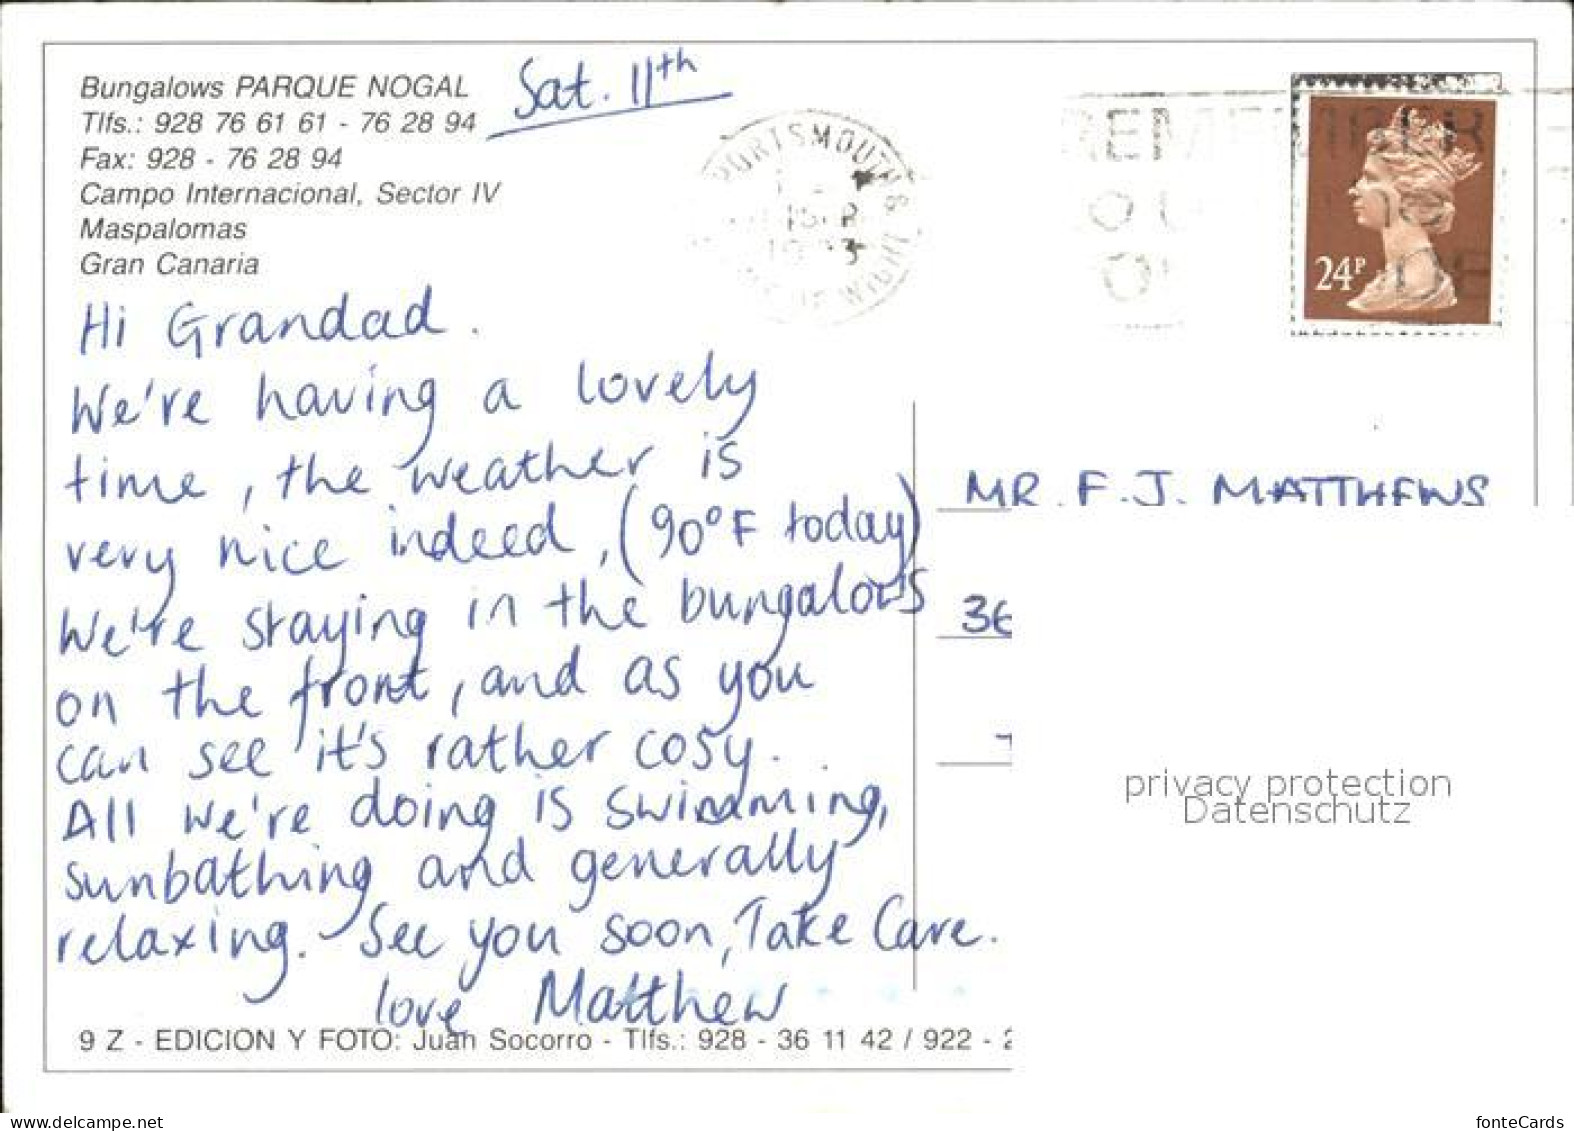 Bungalows PARQUE NOGAL
Tlfs.: 928 76 61 61 - 76 28 94
Fax: 928 - 76 28 94
Campo Internacional, Sector IV
Maspalomas
Gran Canaria
Sat. 11th
PORTSMOUTH &
24P
Hi Grandad.
We're having a lovely
time, the weather is
very nice indeed, (90°F today)
We're staying in the bungalows
on the front, and as you
can see it's rather cosy.
All we're doing is swimming,
sunbathing and generally
relaxing. See you soon, Take Care.
love Matthew
MR. F. J. MATTHEWS
36
9 Z - EDICION Y FOTO: Juan Socorro - Tlfs.: 928 - 36 11 42 / 922 - 2
privacy protection
Datenschutz
www.delcampe.net
fonteCards